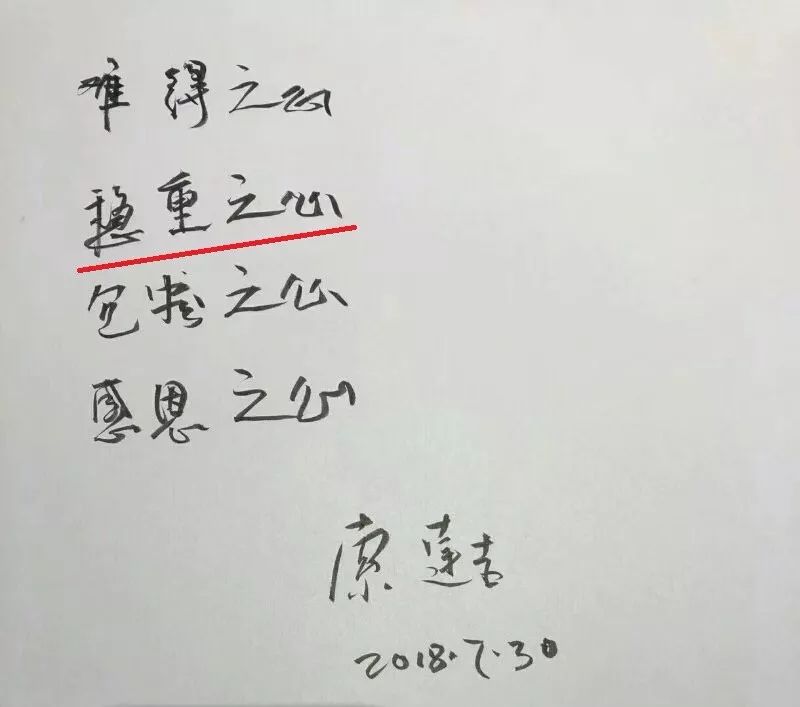 难得之心
稳重之心
包容之心
感恩之心
2018.7.30